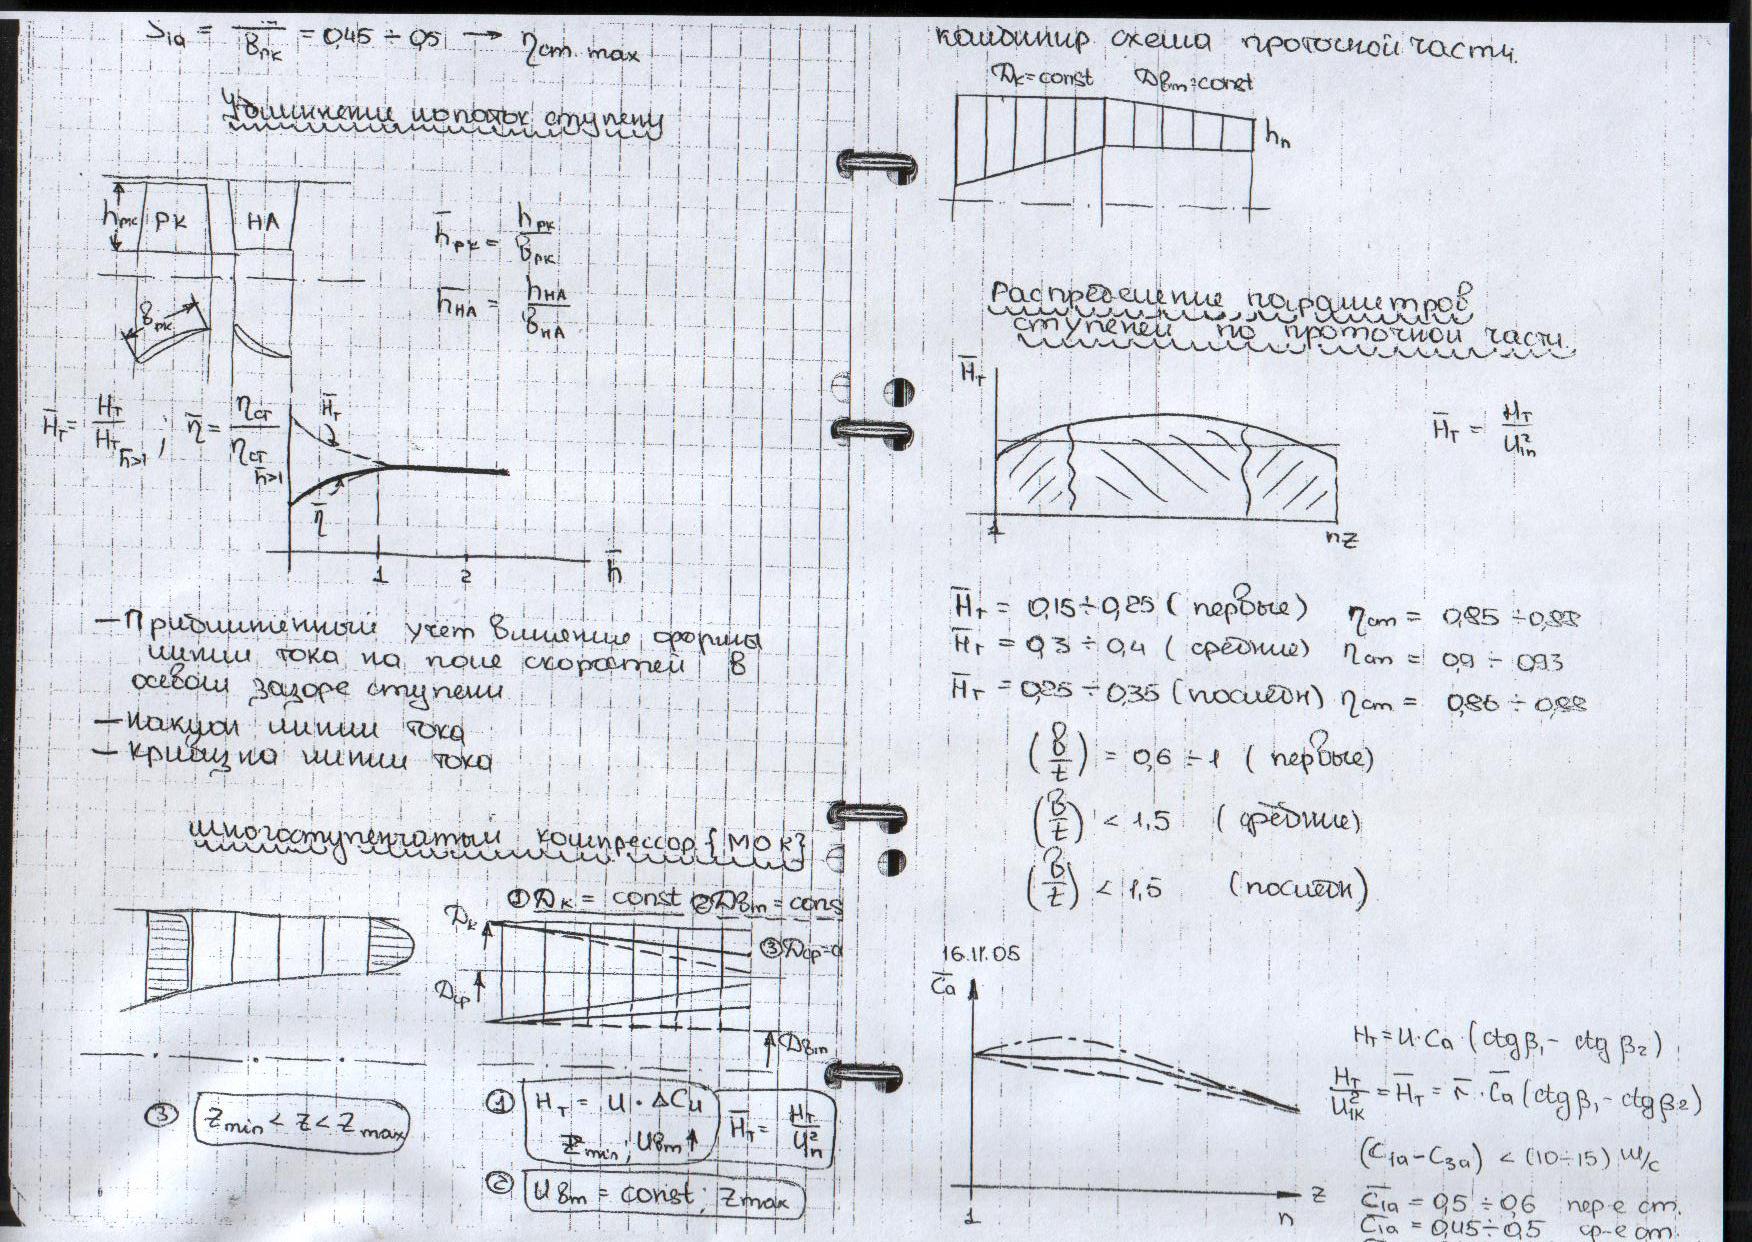 S1a = —/Bрк = 0,45 ÷ 0,5 → ηст. max
Удлинение лопаток ступени
hрк РК НА
h̄рк = hрк/Bрк
h̄НА = hНА/BНА
Bрк
H̄т = Hт/Hт h̄>1 ; η̄ = ηст/ηст h̄>1
H̄т
η̄
1 2 h̄
— Приближенный учет влияние формы
линии тока на поле скоростей в
осевом зазоре ступени
— Наклон линии тока
— Кривизна линии тока
Многоступенчатый компрессор {МОК}
① Dк = const ② Dвт = cons
Dк
③ Dср=c
Dср
Dвт
③ Zmin < Z < Zmax
① Hт = U · ΔCu
Zmin; Uвт ↑
H̄т = Hт/U²п
② Uвт = const; Zmax
комбинир. схема проточной части.
Dк = const Dвт = const
hп
Распределение параметров
ступеней по проточной части.
H̄т
H̄т = Hт/U²1п
1 nz
H̄т = 0,15 ÷ 0,25 (первые) ηст = 0,85 ÷ 0,88
H̄т = 0,3 ÷ 0,4 (средние) ηст = 0,9 ÷ 0,93
H̄т = 0,25 ÷ 0,35 (последн) ηст = 0,86 ÷ 0,88
(B/t) = 0,6 ÷ 1 (первые)
(B/t) < 1,5 (средние)
(B/t) < 1,5 (последн)
16.11.05
C̄a
Hт = U · Ca · (ctg β₁ - ctg β₂)
Hт/U²1к = H̄т = r̄ · C̄a (ctg β₁ - ctg β₂)
(C1a - C3a) < (10 ÷ 15) м/с
1 n z
C̄1a = 0,5 ÷ 0,6 пер-е ст.
C̄1a = 0,45 ÷ 0,5 ср-е ст.